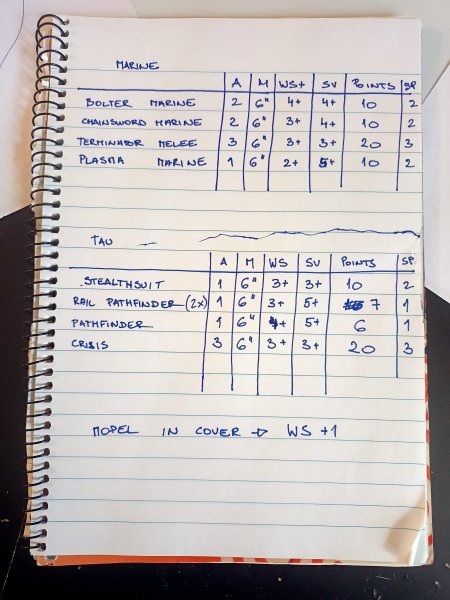 MARINE
A M WS+ SV POINTS SP
BOLTER MARINE 2 6" 4+ 4+ 10 2
CHAINSWORD MARINE 2 6" 3+ 4+ 10 2
TERMINATOR MELEE 3 6" 3+ 3+ 20 3
PLASMA MARINE 1 6" 2+ 5+ 10 2
TAU
A M WS SV POINTS SP
STEALTHSUIT 1 6" 3+ 3+ 10 2
RAIL PATHFINDER (2x) 1 6" 3+ 5+ 7 1
PATHFINDER 1 6" 4+ 5+ 6 1
CRISIS 3 6" 3+ 3+ 20 3
MODEL IN COVER → WS +1